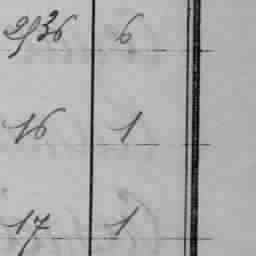 2536 6
16 1
17 1